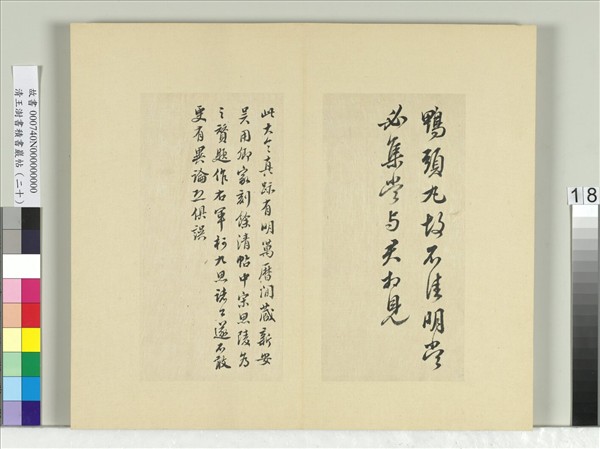 鴨頭丸故不佳明當
必集當与君相見
此大令真跡有明萬曆間藏新安
吳用卿家刻餘清帖中宋思陵為
之贊題作右軍
更有異論且俱誤
故書 000740N000000000
清王澍書積書巖帖（二十）
18